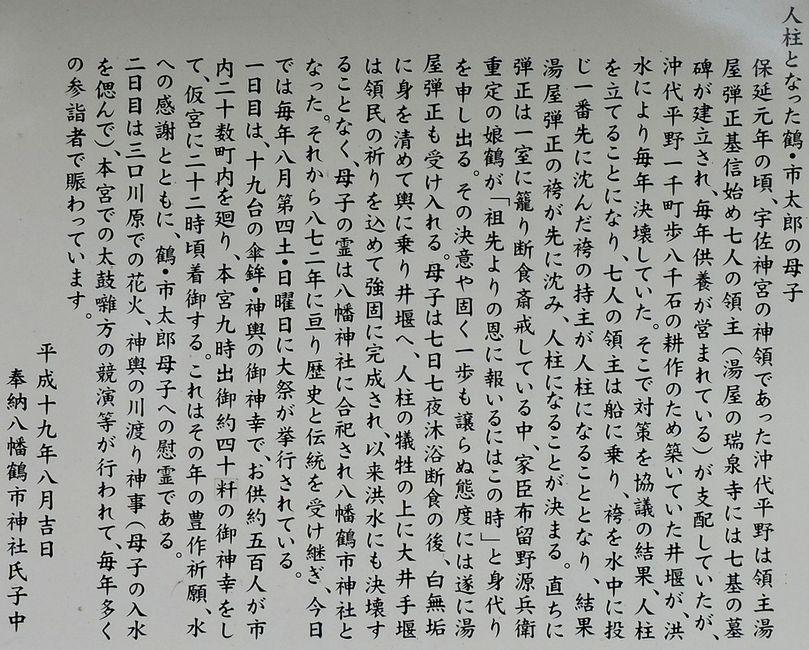 人柱となった鶴・市太郎の母子
保延元年の頃、宇佐神宮の神領であった沖代平野は領主湯
屋弾正基信始め七人の領主（湯屋の瑞泉寺には七基の墓
碑が建立され、毎年供養が営まれている）が支配していたが、
沖代平野一千町歩八千石の耕作のため築いていた井堰が、洪
水により毎年決壊していた。そこで対策を協議の結果、人柱
を立てることになり、七人の領主は船に乗り、袴を水中に投
じ一番先に沈んだ袴の持主が人柱になることとなり、結果
湯屋弾正の袴が先に沈み、人柱になることが決まる。直ちに
弾正は一室に籠り断食斎戒している中、家臣布留野源兵衛
重定の娘鶴が「祖先よりの恩に報いるにはこの時」と身代り
を申し出る。その決意や固く一歩も譲らぬ態度には遂に湯
屋弾正も受け入れる。母子は七日七夜沐浴断食の後、白無垢
に身を清めて輿に乗り井堰へ、人柱の犠牲の上に大井手堰
は領民の祈りを込めて強固に完成され、以来洪水にも決壊す
ることなく、母子の霊は八幡神社に合祀され八幡鶴市神社と
なった。それから八七二年に亘り歴史と伝統を受け継ぎ、今日
では毎年八月第四土・日曜日に大祭が挙行されている。
一日目は、十九台の傘鉾・神輿の御神幸で、お供約五百人が市
内二十数町内を廻り、本宮九時出御約四十粁の御神幸をし
て、仮宮に二十二時頃着御する。これはその年の豊作祈願、水
への感謝とともに、鶴・市太郎母子への慰霊である。
二日目は三口川原での花火、神輿の川渡り神事（母子の入水
を偲んで）、本宮での太鼓囃方の競演等が行われて、毎年多く
の参詣者で賑わっています。
平成十九年八月吉日
奉納八幡鶴市神社氏子中